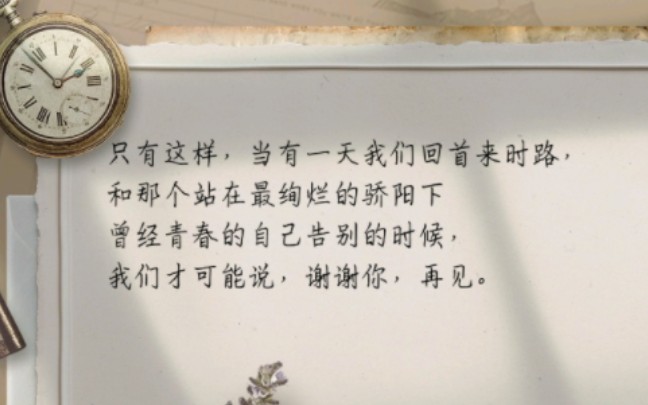 只有这样，当有一天我们回首来时路，
和那个站在最绚烂的骄阳下
曾经青春的自己告别的时候，
我们才可能说，谢谢你，再见。